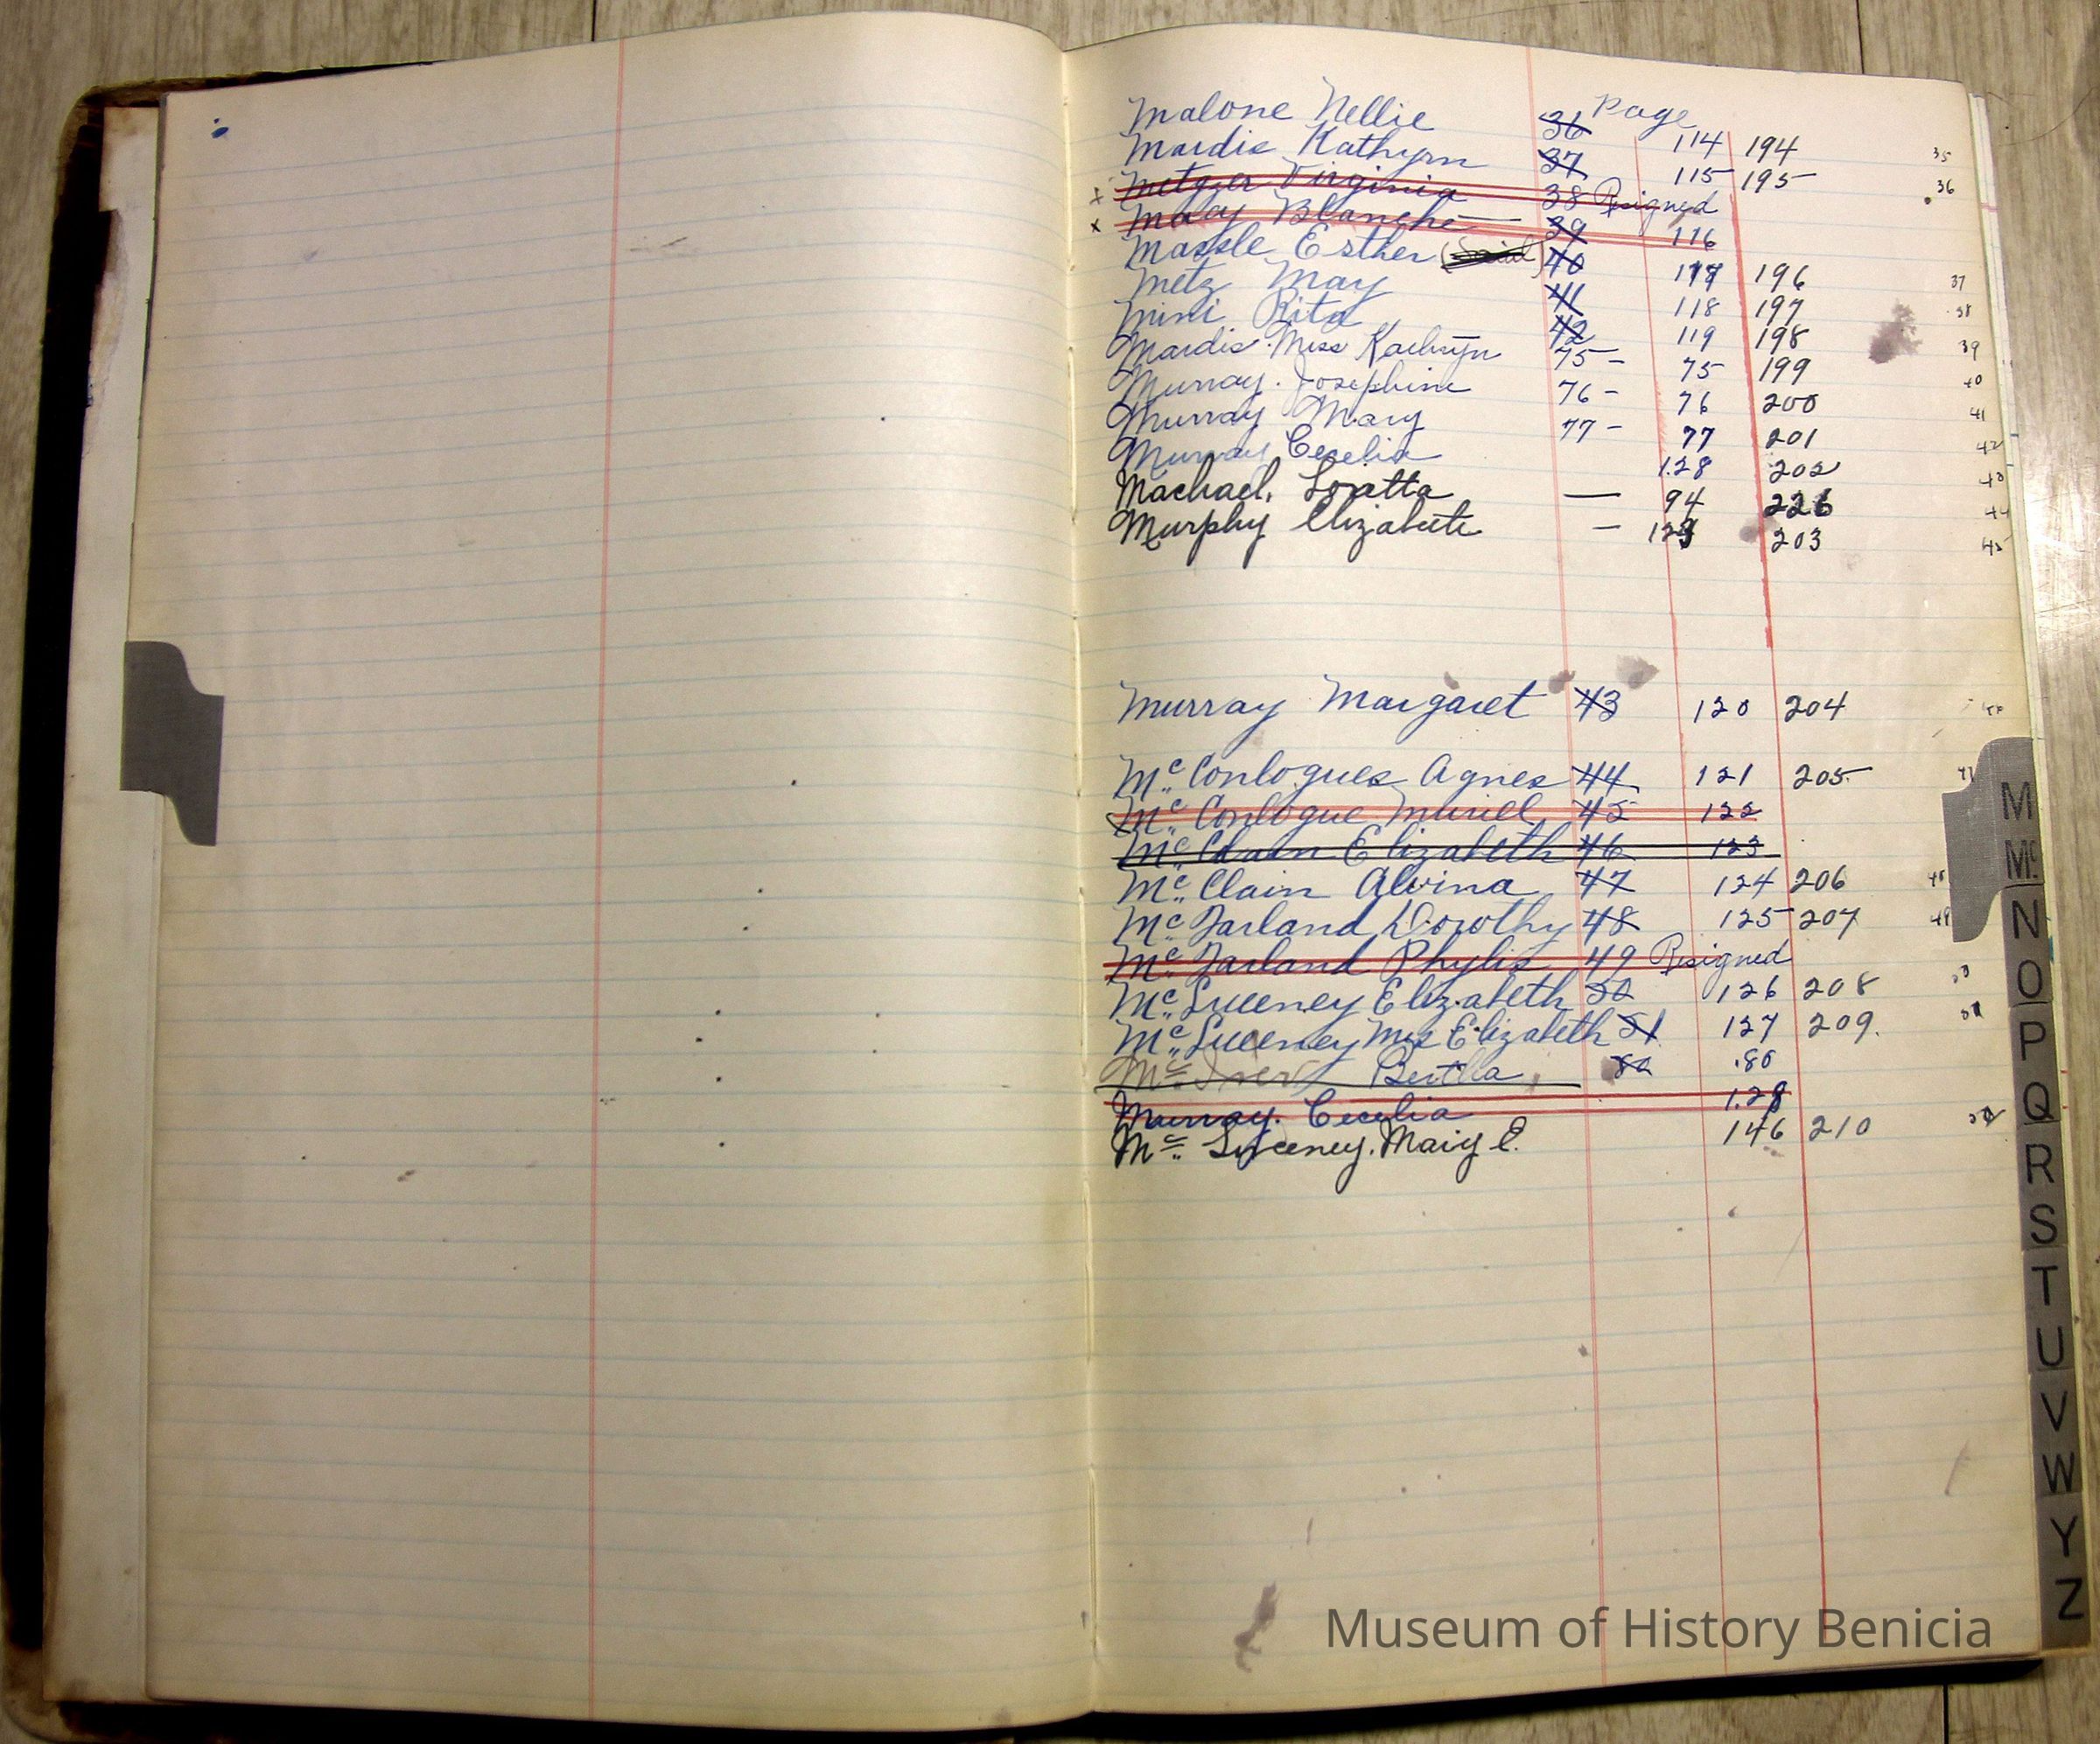 Page
Malone Nellie 36 114 194 35
Mardis Kathyrn 37 115 195 36
x Metzger Virginia 38 Resigned
x Macy Blanche 39 116
Massle Esther 40 117 196 37
Metz May 41 118 197 38
Mini Rita 42 119 198 39
Mardis Miss Kathryn 75 - 75 199 40
Murray. Josephine 76 - 76 200 41
Murray Mary 77 - 77 201 42
Murray Cecelia 128 202 43
Machael, Loratta — 94 226 44
Murphy Elizabete — 129 203 45
Murray Margaret 43 120 204
Mc Conlogues Agnes 44 121 205 47
Mc Conlogue Muriel 45 122
Mc Elizabeth 46 123
Mc Clain Alvina 47 124 206 48
Mc Farland Dorothy 48 125 207 49
Mc Farland Phylis 49 Resigned
Mc Sweeney Elizabeth 50 126 208 50
Mc Sweeney Mrs Elizabeth 51 127 209. 51
Mc Bertha 80 .80
Murray. Cecelia 128
Mc Sweeney. Mary E. 146 210 52
M
Mc.
N
O
P
Q
R
S
T
U
V
W
Y
Z
Museum of History Benicia